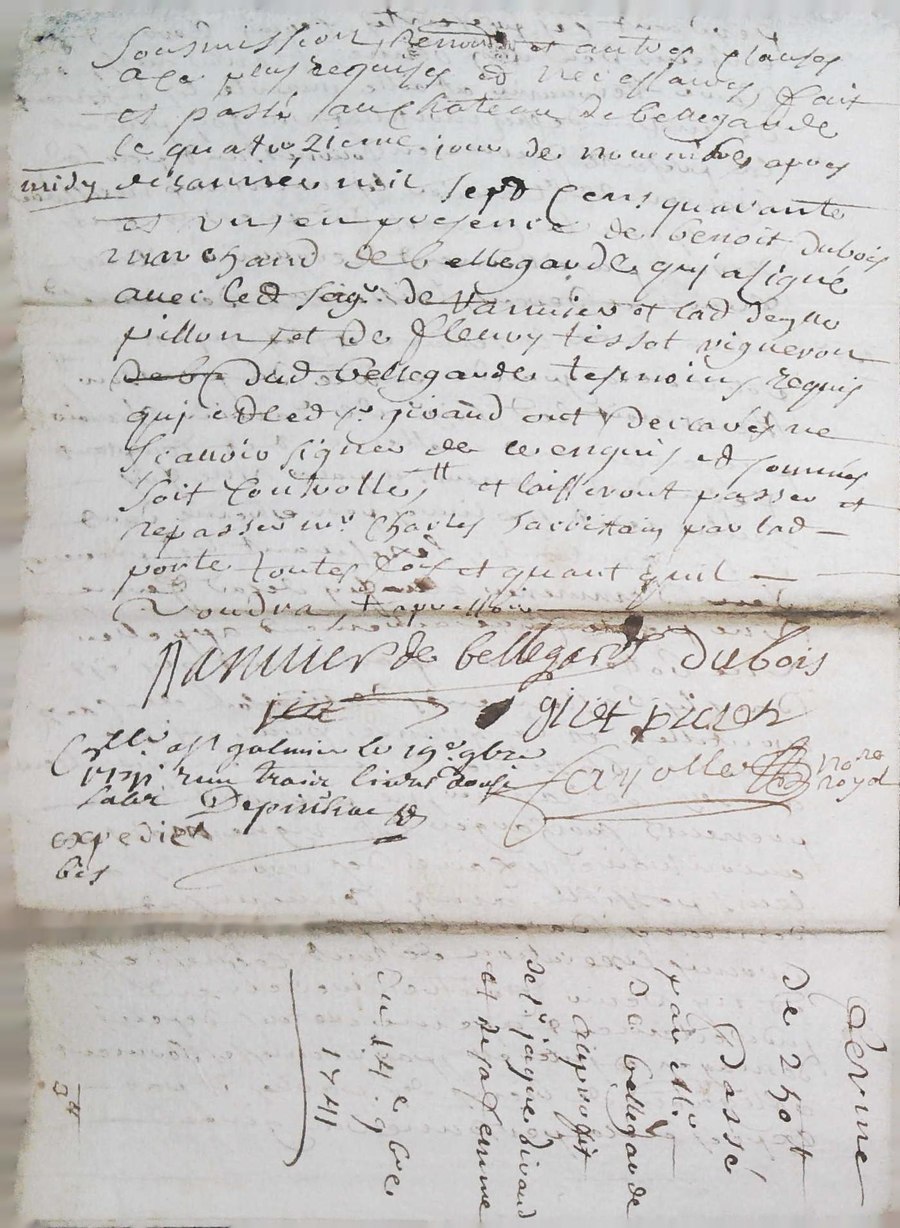 Sousmission, renon et autres clauses
a ce plus requises et necessaires, fait
et passé au Chateau de bellegarde
le quatorzieme jour de novembre apres
midy de l'année mil sept Cens quarante
et un en presence de benoit dubois
marchand de bellegarde qui a signé
avec led seigr. de Rannier et lad
pillon, et de fleury tissot vigneron
de b dud bellegarde tesmoins requis
qui et led sr. givaud ont declarés ne
scavoir signer de ce enquis et sommés
soit Controllé, tt et laisseront passer et
repasser mr Charles par lad
porte toutes fois et quant quil
voudra +
Rannier de bellegarde dubois
giletpicien
Cllé a st galmier le 19e. 9bre
1741 livres douse
Fayolle nore
royal
expediés
bis
Ferme
de 240 tt
Passé
par Mr.
de bellegarde
Au proffit
de sr. jaque Givaud
et de sa femme
Du 14. e 9bre
1741